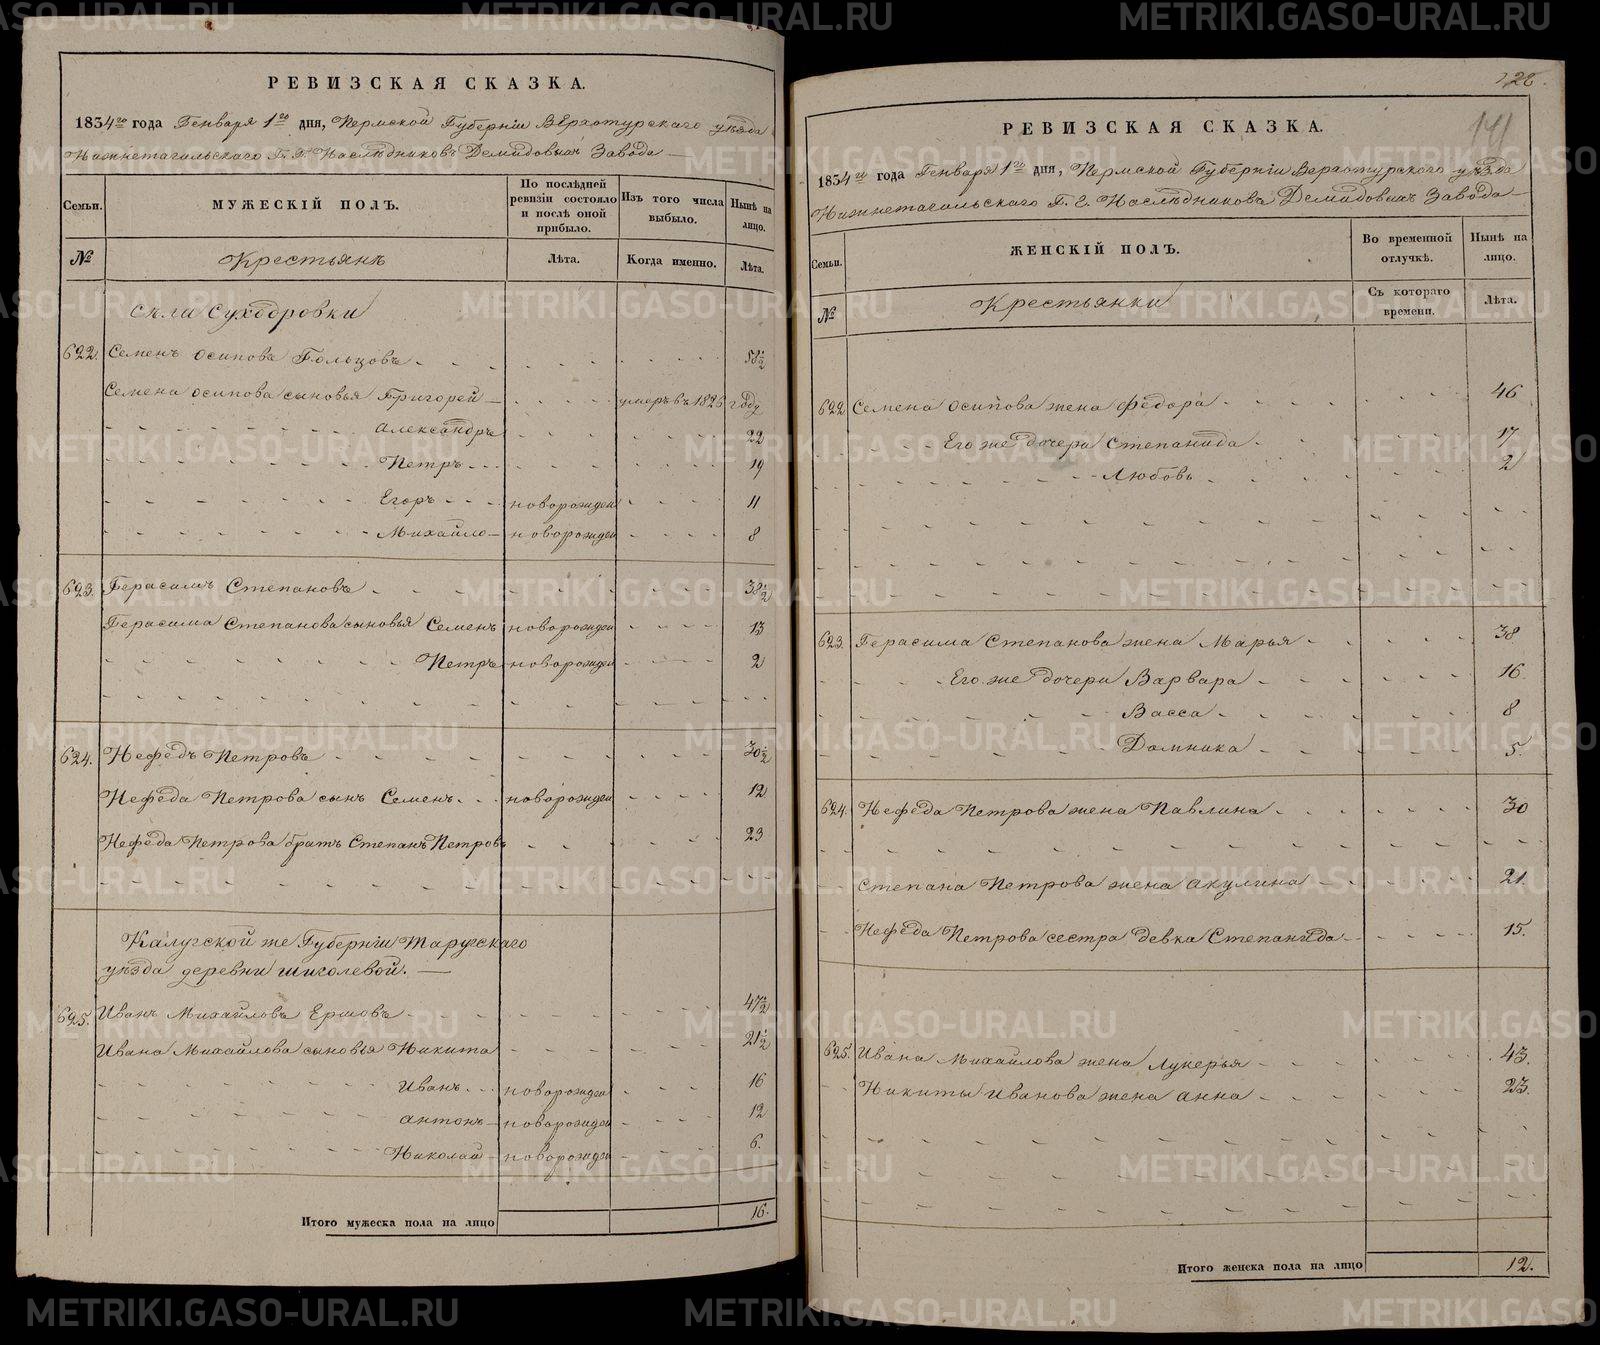 РЕВИЗСКАЯ СКАЗКА.
1834го года Генваря 1го дня, Пермской Губерніи Верхотурскаго уѣзда
Нижнетагильскаго Г. Г. Наслѣдниковъ Демидовыхъ Завода
Семьи.
МУЖЕСКІЙ ПОЛЪ.
По послѣдней ревизіи состояло и послѣ оной прибыло.
Изъ того числа выбыло.
Нынѣ на лицо.
№
Крестьянъ
Лѣта.
Когда именно.
Лѣта.
Села Суходровки
622. Семенъ Осипова Гольцовъ 58½
Семена Осипова сыновья Григорей умеръ въ 1826 году
Александръ 22
Петръ 19
Егоръ новорожден 11
Михайло новорожден 8
623. Герасимъ Степановъ 38½
Герасима Степанова сыновья Семенъ новорожден 13
Петръ новорожден 2
624. Нефедъ Петровъ 30½
Нефеда Петрова сынъ Семенъ новорожден 12
Нефеда Петрова братъ Степанъ Петровъ 23
Калугской же Губерніи Таругскаго
уѣзда деревни Шиголевой.
625. Иванъ Михайловъ Ершовъ 47½
Ивана Михайлова сыновья Никита 21½
Иванъ новорожден 16
Антонъ новорожден 12
Николай новорожден 6.
Итого мужеска пола на лицо 16.
122.
141
РЕВИЗСКАЯ СКАЗКА.
1834го года Генваря 1го дня, Пермской Губерніи Верхотурскаго уѣзда
Нижнетагильскаго Г. Г. Наслѣдниковъ Демидовыхъ Завода
Семьи.
ЖЕНСКІЙ ПОЛЪ.
Во временной отлучкѣ.
Нынѣ на лицо.
№
Крестьянки
Съ котораго времени.
Лѣта.
622 Семена Осипова жена Федора 46
Его же дочери Степанида 17
Любовь 2
623. Герасима Степанова жена Марья 38
Его же дочери Варвара 16.
Васса 8
Домника 5.
624. Нефеда Петрова жена Павлина 30
Степана Петрова жена Акулина 21.
Нефеда Петрова сестра девка Степанида 15.
625. Ивана Михайлова жена Лукерья 43.
Никиты Иванова жена Анна 23.
Итого женска пола на лицо 12.
METRIKI.GASO-URAL.RU